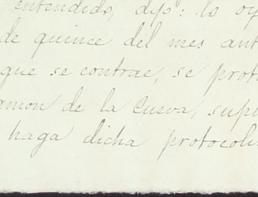 entendido, dijo: lo oy
de quince del mes ant
que se contrae, se prot
amon de la Cueva, supl
haga dicha protocoli